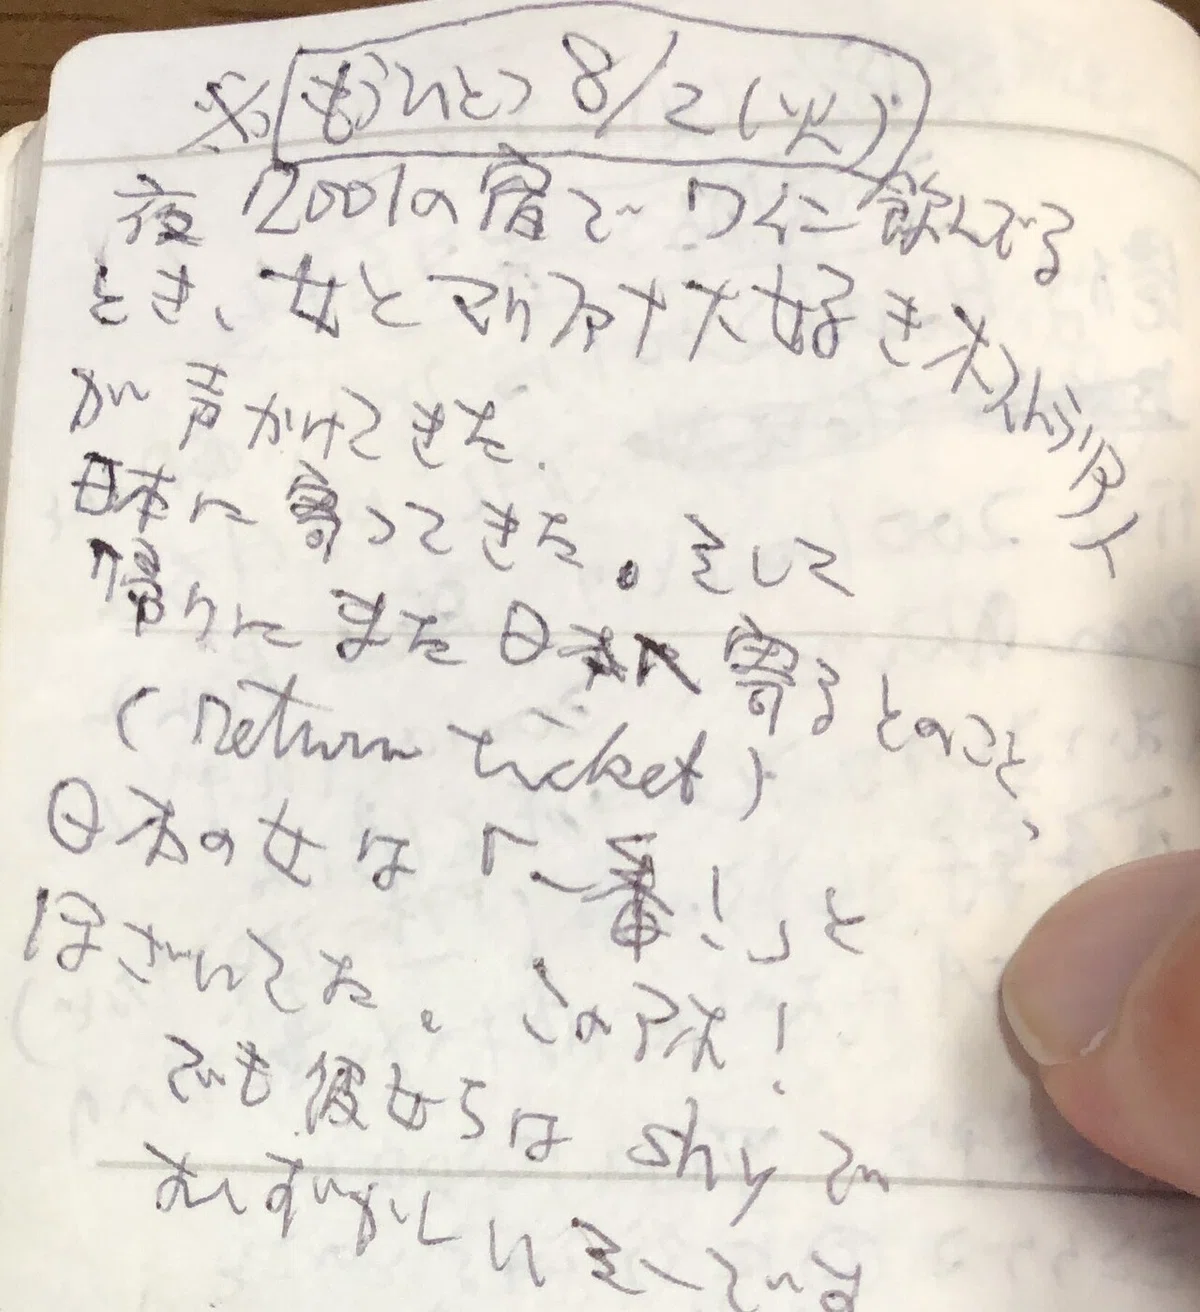 ※ もうひとつ 8/2(火)
夜 2001の宿で ワイン飲んでる
とき、女とマリファナ大好きオーストラリア人
が声かけてきた.
日本に寄ってきた。そして
帰りにまた日本に寄るとのこと、
(return ticket)
日本の女は「一番!」と
ほざいてた。このアホ!
でも彼女らは shy で
むずかしいと言っている